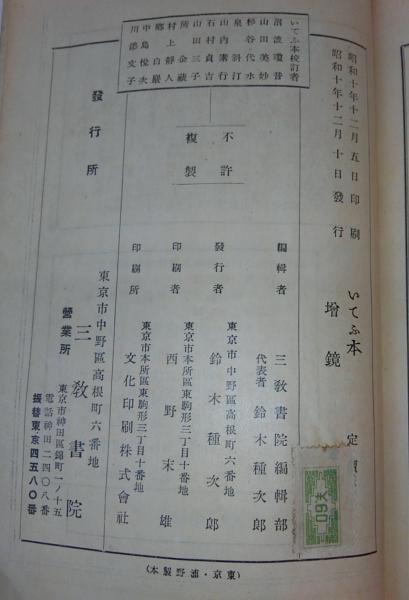 昭和十年十二月五日印刷
昭和十年十二月十日發行
いてふ本
增鏡
定價
いてふ本校訂者
沼波瓊音
山田美妙
杉谷代水
泉斜汀
山内素行
石村貞吉
山田三子
所金蔵
村上靜人
鄕白巖
中島悅次
川添文子
不許
複製
編輯者
三敎書院編輯部
代表者 鈴木種次郎
東京市中野區高根町六番地
發行者
鈴木種次郎
東京市本所區東駒形三丁目十番地
印刷者
西野末雄
東京市本所區東駒形三丁目十番地
印刷所
文化印刷株式會社
發行所
東京市中野區高根町六番地
三敎書院
營業所
東京市神田區錦町一ノ十五
電話神田二四〇八番
振替東京四五八〇番
(東京・浦野製本)